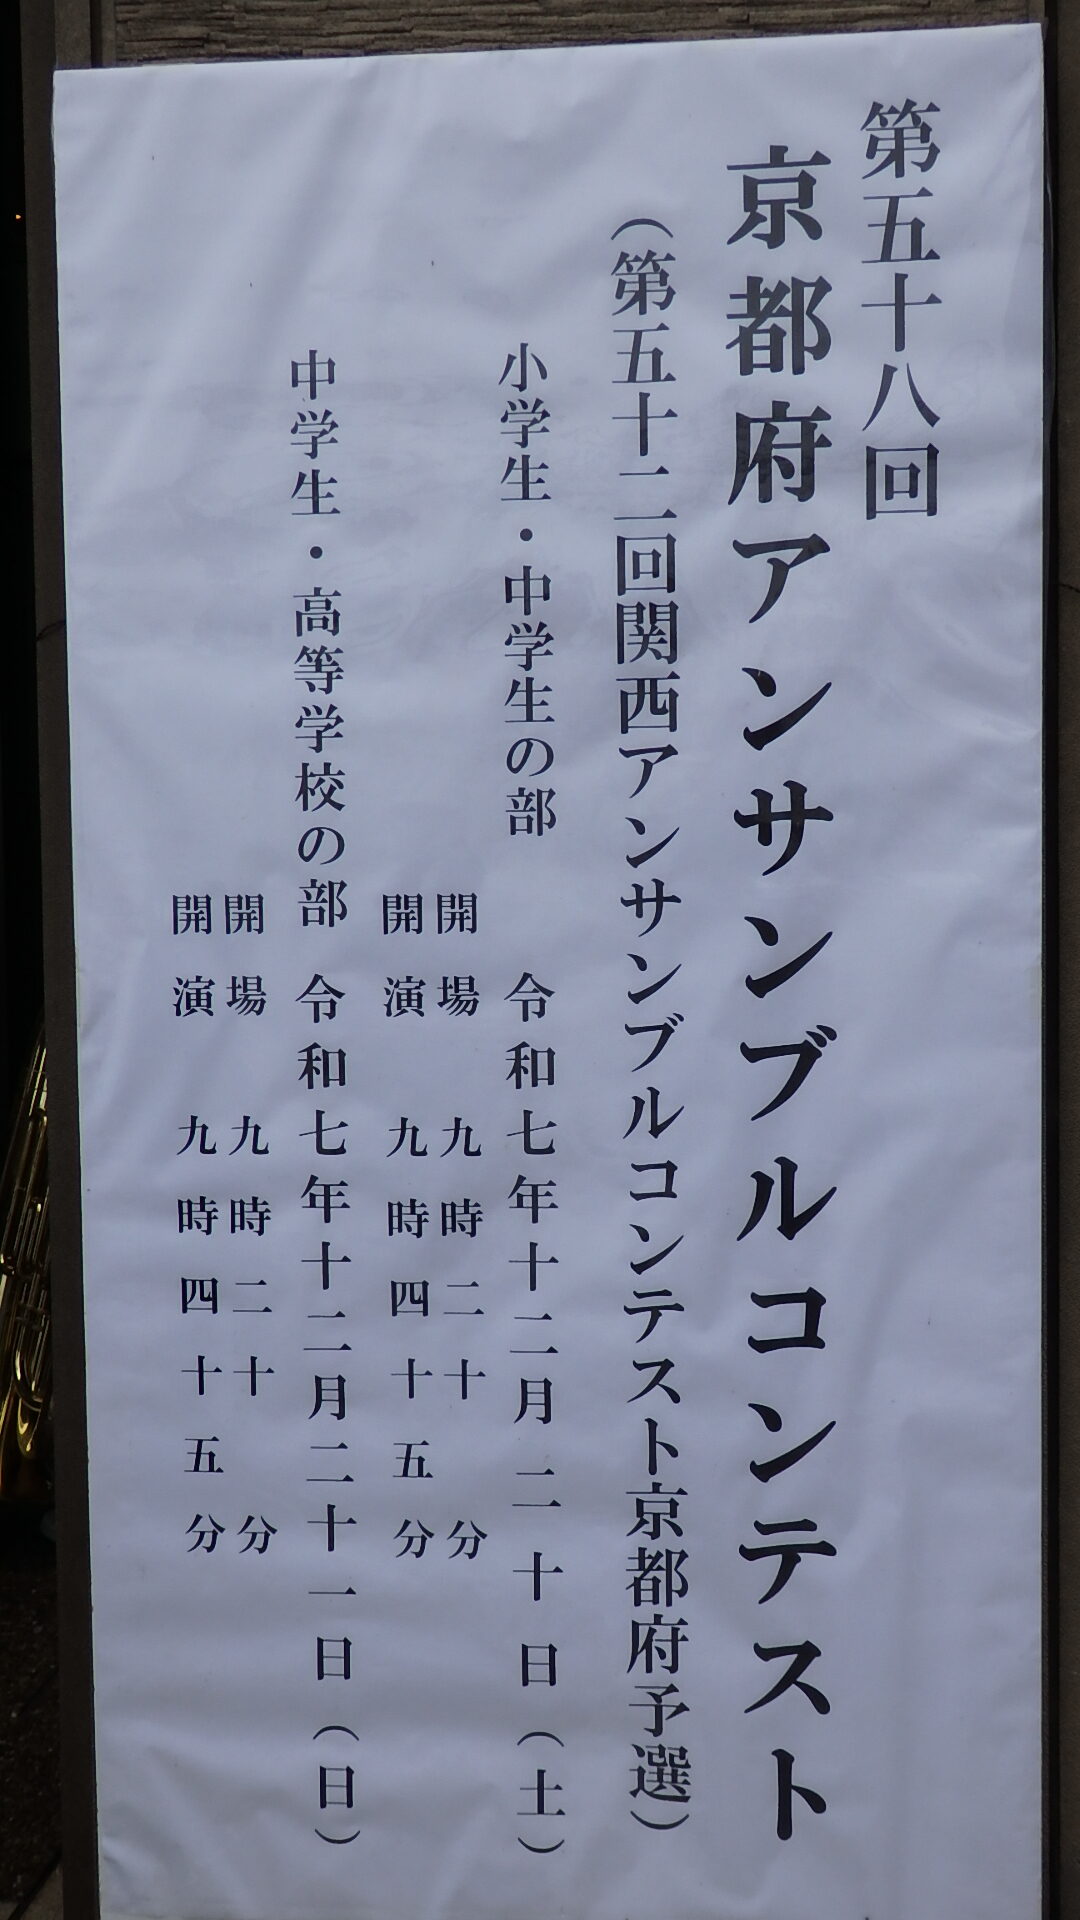 第五十八回
京都府アンサンブルコンテスト
（第五十二回関西アンサンブルコンテスト京都府予選）
小学生・中学生の部　令和七年十二月二十日（土）
開場　九時二十分
開演　九時四十五分
中学生・高等学校の部　令和七年十二月二十一日（日）
開場　九時二十分
開演　九時四十五分